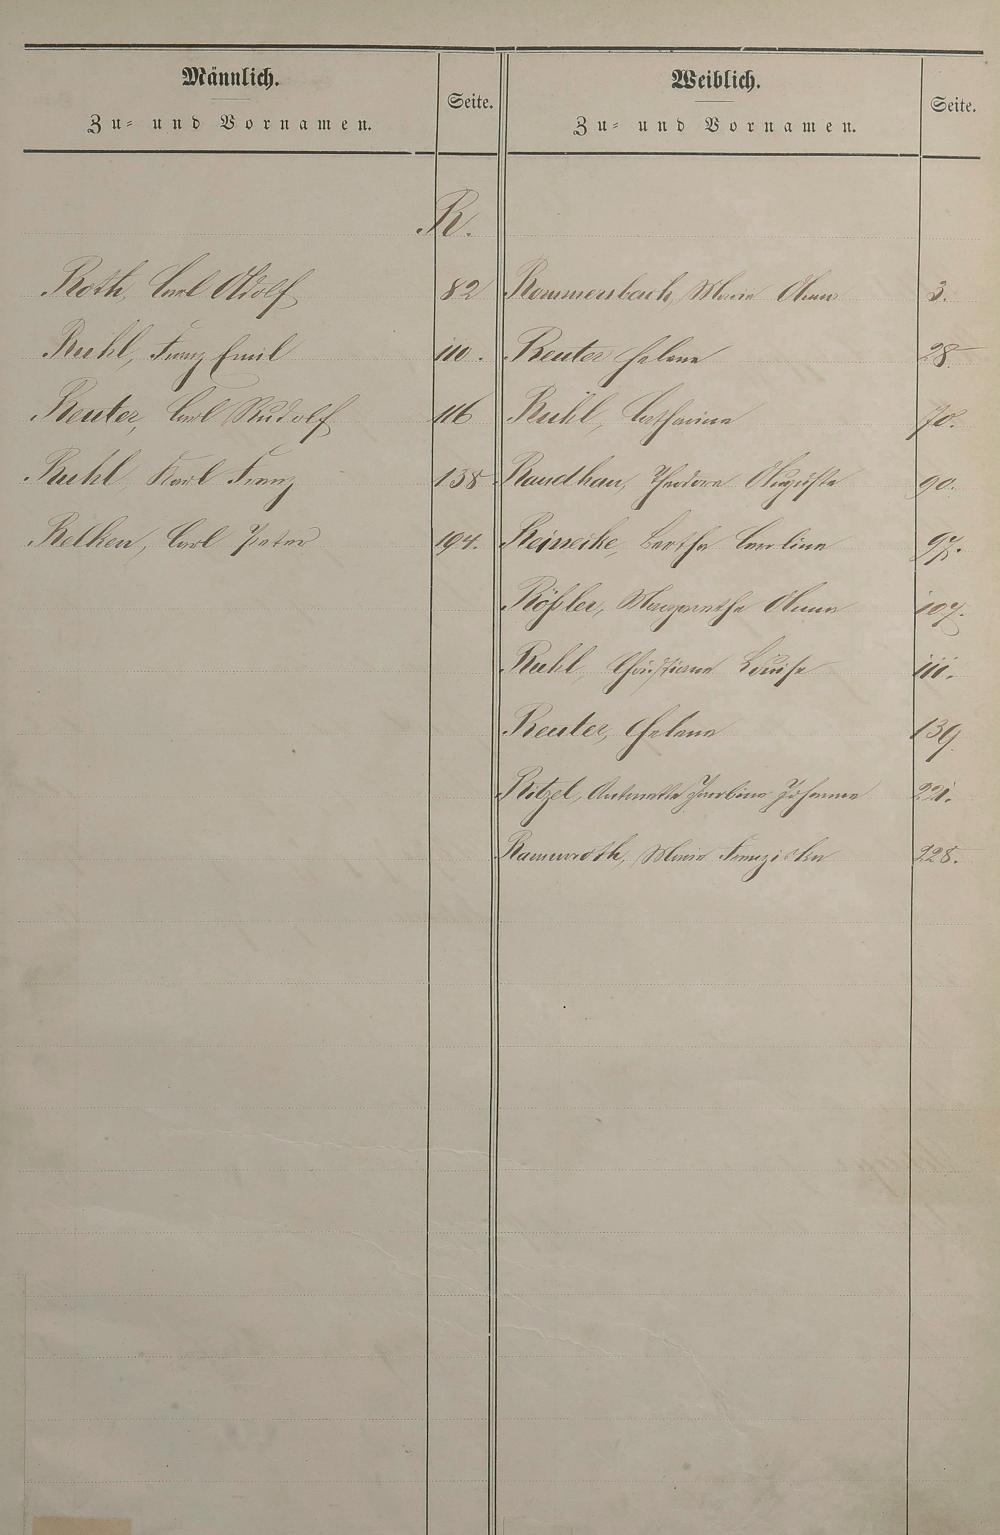 Männlich.
Zu- und Vornamen.
Seite.
Weiblich.
Zu- und Vornamen.
Seite.
R.
Roth, Carl Adolf 82
Ruhl, Franz Emil 110.
Reuter, Carl Rudolf 116
Ruhl, Karl Franz 138
Relken, Carl Peter 194.
Rommersbach, Maria Anna 3.
Reuter Helene 28.
Ruhl, Catharina 70.
Randhan, Theodora Auguste 90.
Reinecke, Bertha Carolina 97.
Rößler, Margaretha Anna 107.
Ruhl, Christiane Louise 111.
Reuter, Helena 139.
Ritzel, Antonette Jacobina Johanna 221.
Rammroth, Maria Franziska 228.